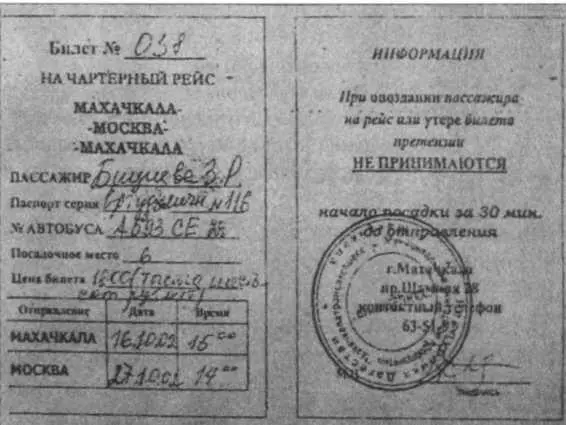 Билет № 038
НА ЧАРТЕРНЫЙ РЕЙС
МАХАЧКАЛА-
-МОСКВА-
-МАХАЧКАЛА
ПАССАЖИР З.Р.
Паспорт серия №116
№ АВТОБУСА А 593 СЕ
Посадочное место 6
Цена билета 1600 (тысяча шесть-
сот рублей)
Отправление Дата Время
МАХАЧКАЛА 16.10.02 15 00
МОСКВА 27.10.02 14 00
ИНФОРМАЦИЯ
При опоздании пассажира
на рейс или утере билета
претензии
НЕ ПРИНИМАЮТСЯ
начало посадки за 30 мин.
до отправления
г.Махачкала
пр.Шамиля 28
контактный телефон
63-51
подпись